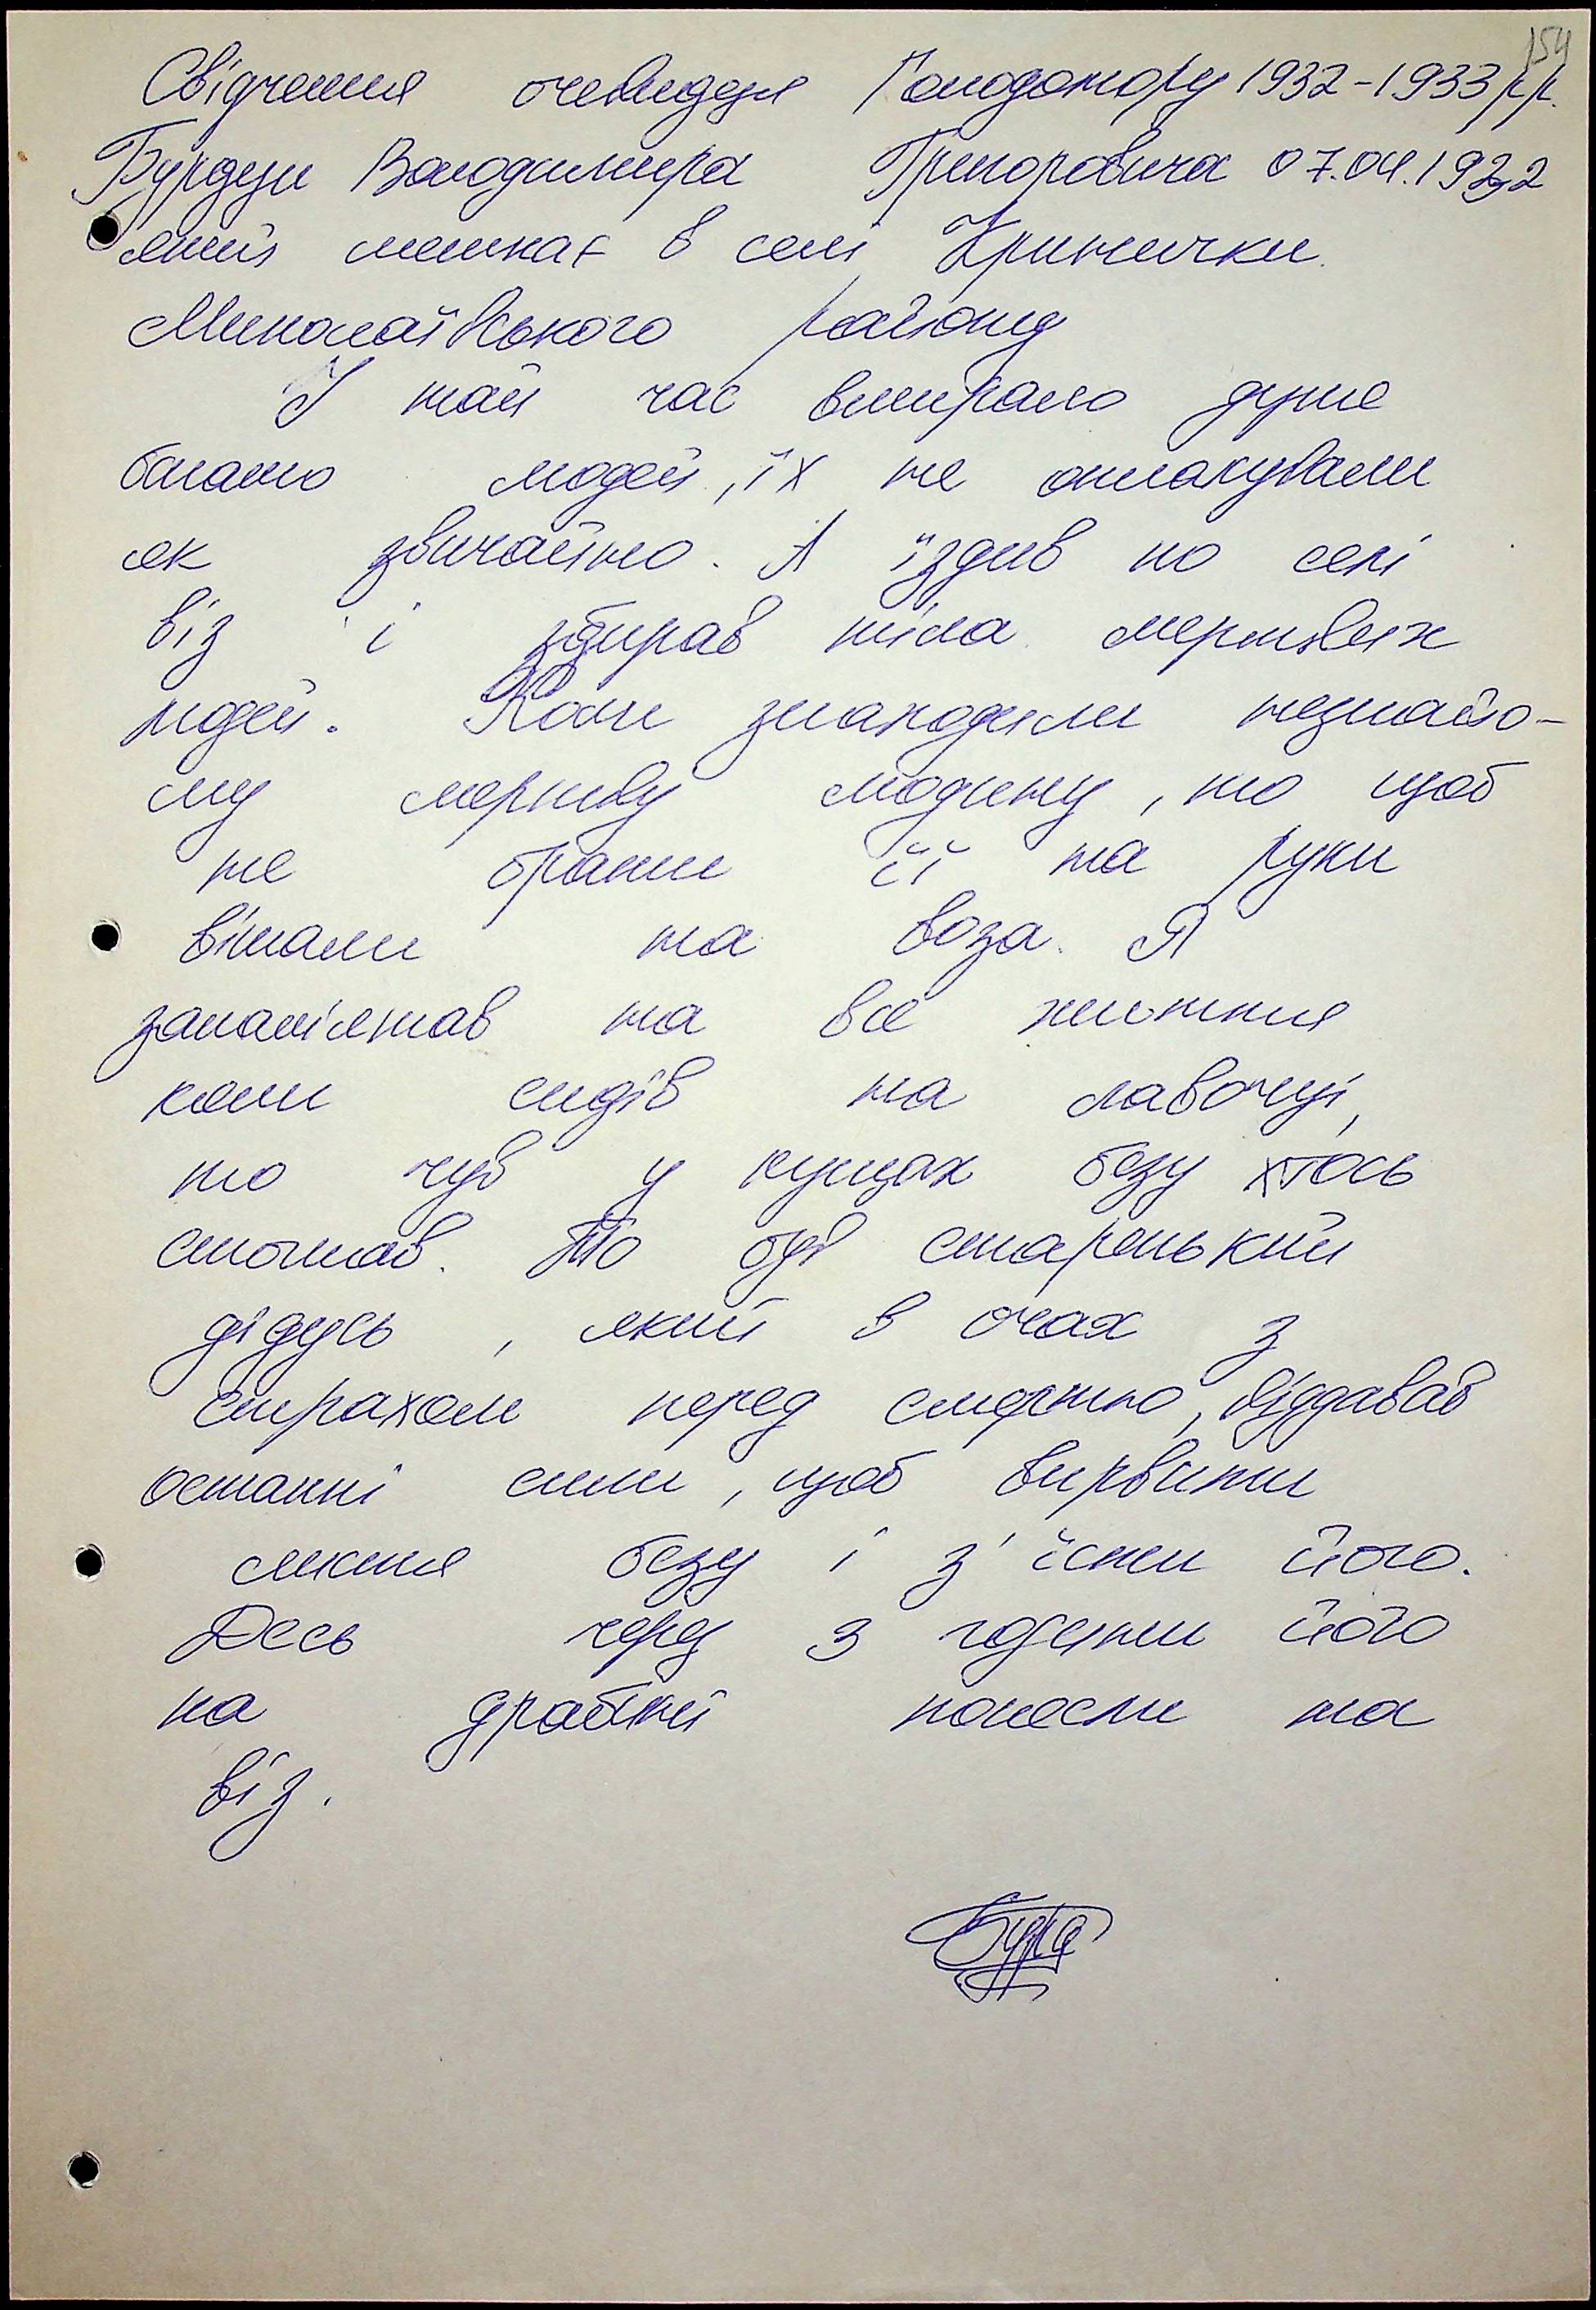 154
Свідчення очевидця Голодомору 1932-1933 рр.
Бурдуи Володимира Григоровича 07.04.1922
який мешкає в селі Кринички
Миколаївського району
У той час вмирало дуже
багато людей, їх не оплакували
як звичайно. А їздив по селі
віз і збирав тіла мертвих
людей. Коли знаходили незнайо-
му мертву людину, то щоб
не брати її на руки
вішали на воза. Я
запам'ятав на все життя
коли сидів на лавочці,
то чув у кущах безу хтось
стогнав. То був старенький
дідусь, який в очах з
страхом перед смертю, віддавав
останні сили, щоб вирвати
листя безу і з'їсти його.
Десь через 3 години його
на драбині понесли на
віз.